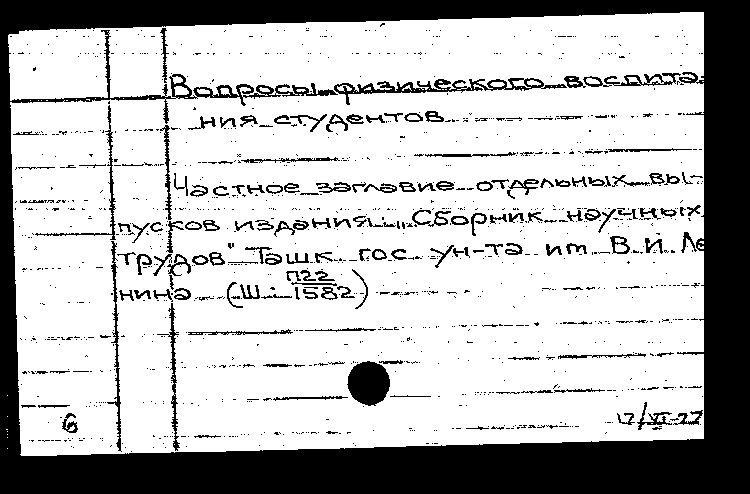 Вопросы физического воспита-
ния студентов
Частное заглавие отдельных вы-
пусков издания: „Сборник научных
трудов" Ташк гос ун-та им В. И. Ле
нина (Ш: П22/1582)
6 17/VI-77